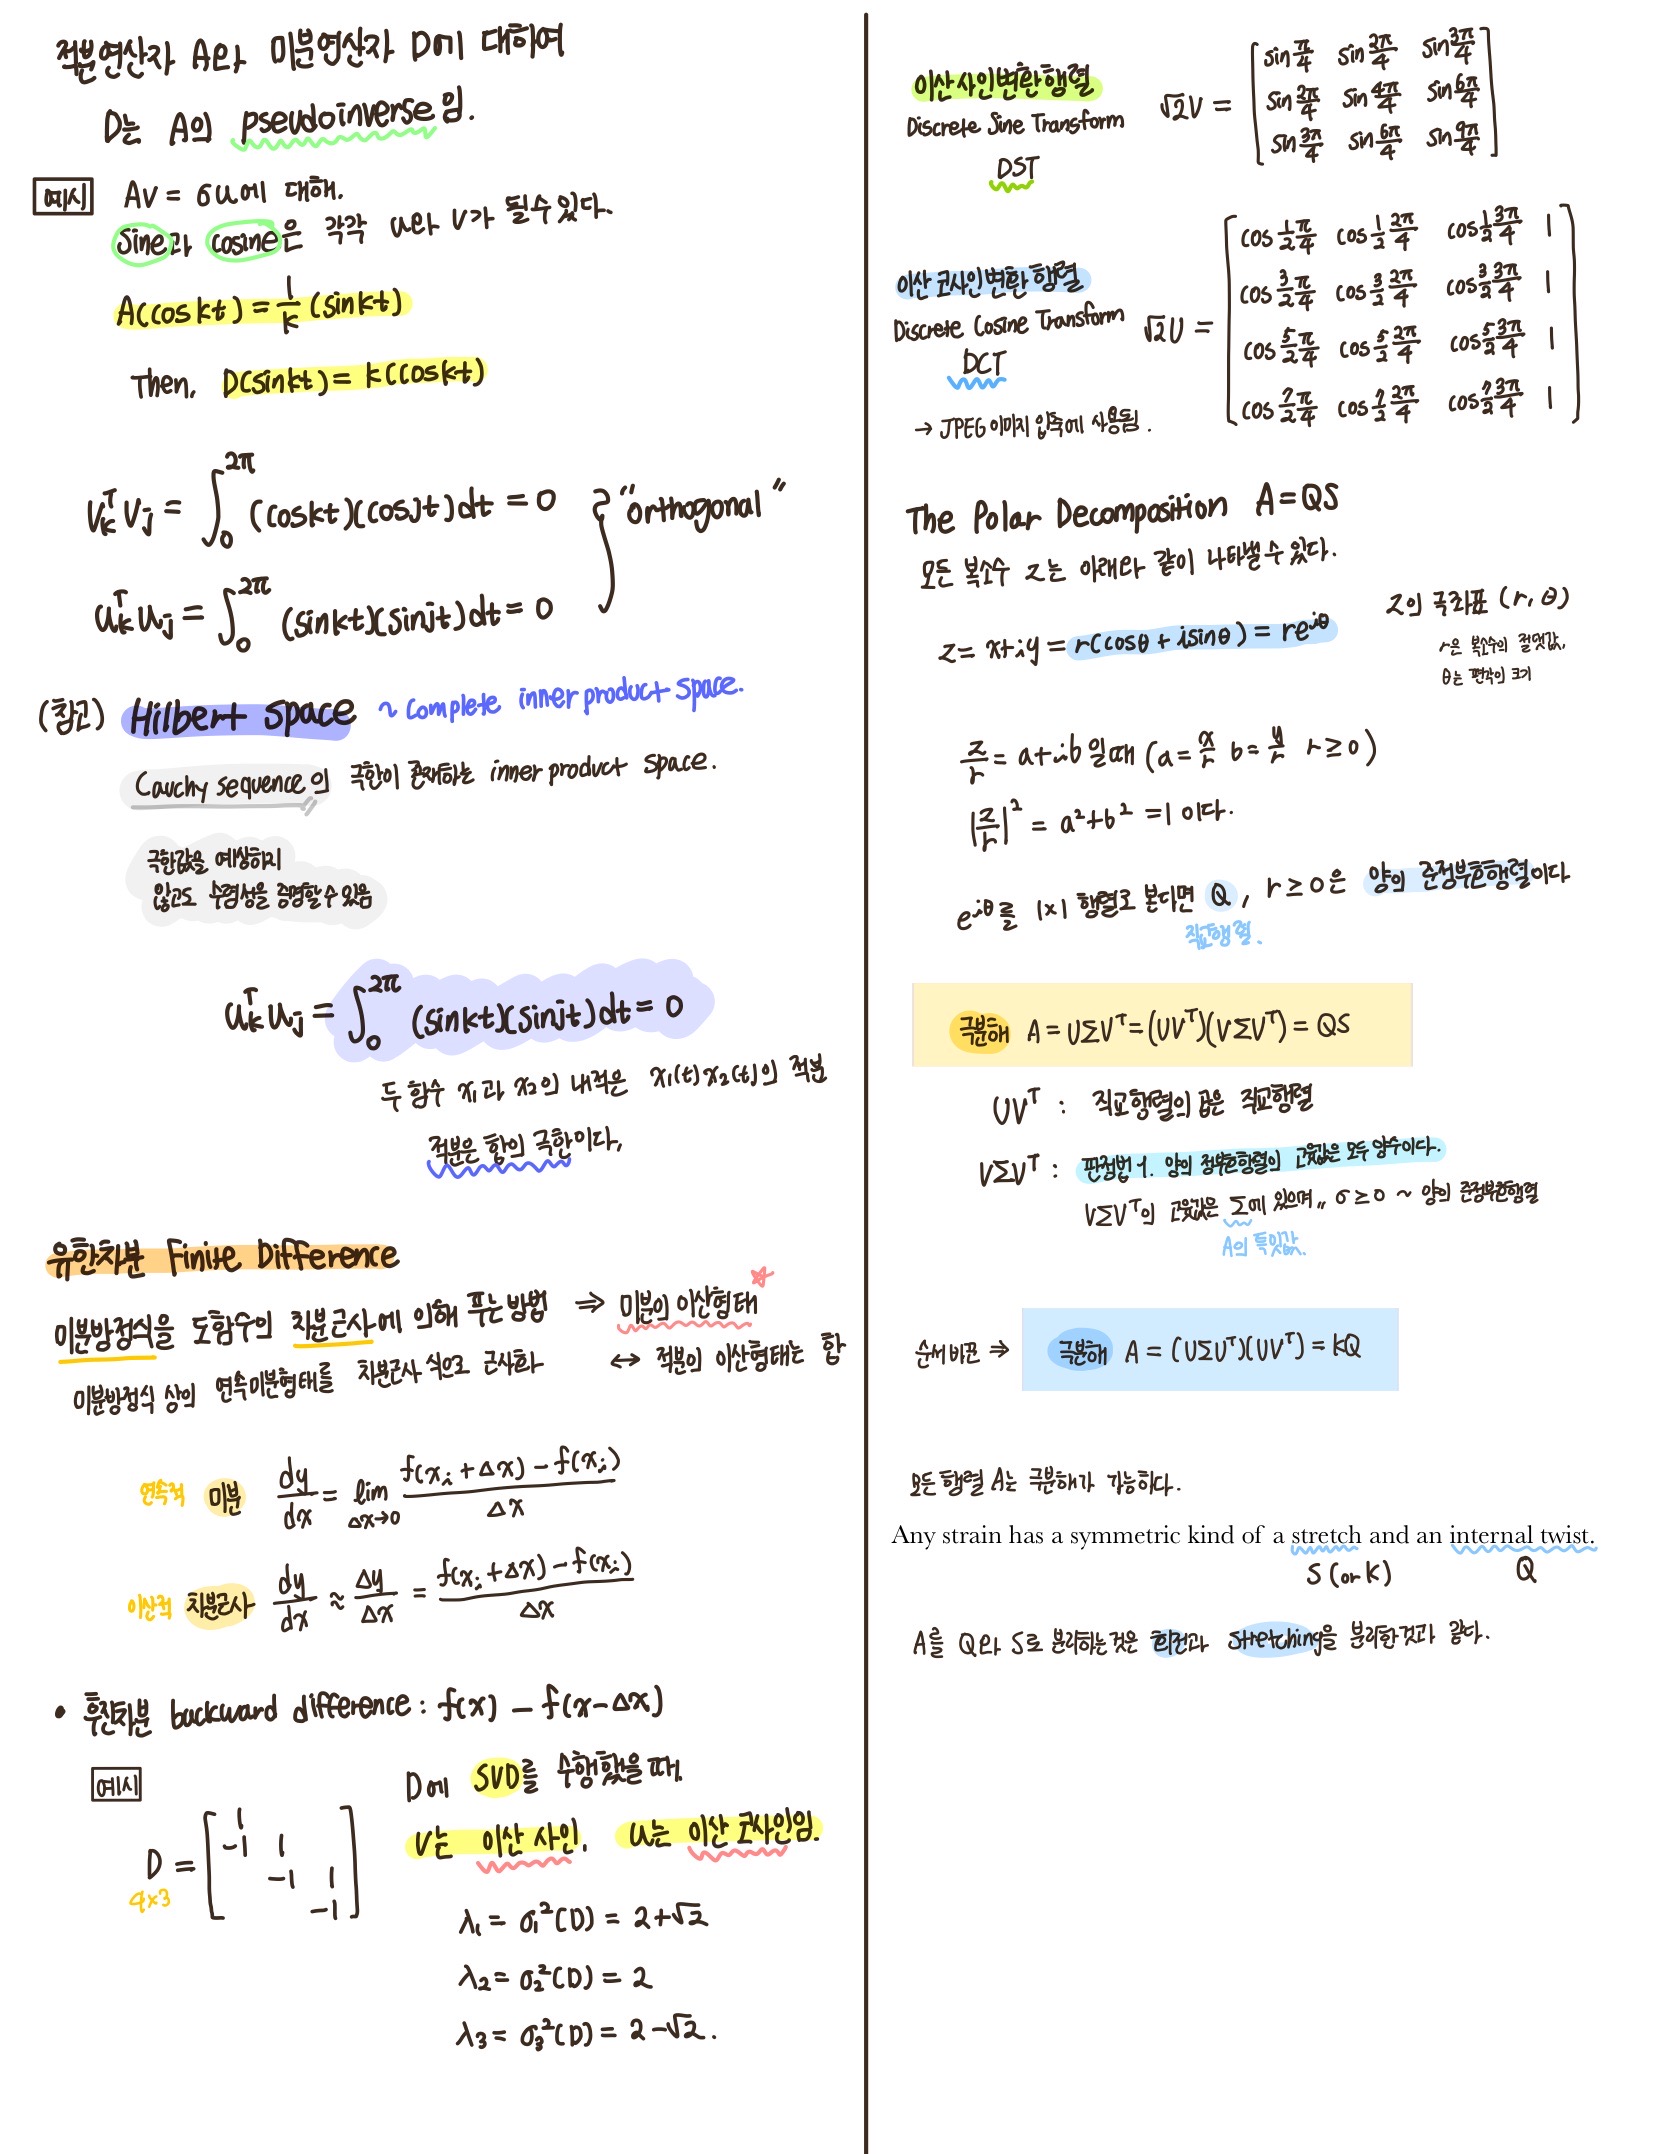 적분연산자 A와 미분연산자 D에 대하여
D는 A의 pseudoinverse임.
예시 Av = σu에 대해.
Sine과 cosine은 각각 u와 v가 될수 있다.
A(cos kt) = 1/k (sin kt)
Then, D(sin kt) = k(cos kt)
Vₖᵀ Vⱼ = ∫₀^2π (cos kt)(cos jt) dt = 0
uₖᵀ uⱼ = ∫₀^2π (sin kt)(sin jt) dt = 0
"orthogonal"
(참고) Hilbert space ~ complete inner product space.
Cauchy sequence의 극한이 존재하는 inner product space.
극한값을 예상하지
않고도 수렴성을 증명할 수 있음
uₖᵀ uⱼ = ∫₀^2π (sin kt)(sin jt) dt = 0
두 함수 x₁과 x₂의 내적은 x₁(t)x₂(t)의 적분
적분은 합의 극한이다,
유한차분 Finite Difference
미분방정식을 도함수의 차분근사에 의해 푸는 방법 ⇒ 미분의 이산형태
미분방정식 상의 연속미분형태를 차분근사 식으로 근사화 ↔ 적분의 이산형태는 합
연속적 미분 dy/dx = lim Δx→0 f(xᵢ + Δx) − f(xᵢ) / Δx
이산적 차분근사 dy/dx ≈ Δy/Δx = f(xᵢ + Δx) − f(xᵢ) / Δx
• 후진차분 backward difference : f(x) − f(x−Δx)
예시
D에 SVD를 수행했을 때.
V는 이산 사인. U는 이산 코사인임.
D = [ 1
−1 1
−1 1
−1 ]
4×3
λ₁ = σ₁²(D) = 2+√2
λ₂ = σ₂²(D) = 2
λ₃ = σ₃²(D) = 2−√2 .
이산 사인변환 행렬
Discrete Sine Transform
DST
√2V = [ sin π/4 sin 2π/4 sin 3π/4
sin 2π/4 sin 4π/4 sin 6π/4
sin 3π/4 sin 6π/4 sin 9π/4 ]
이산 코사인변환 행렬
Discrete Cosine Transform
DCT
→ JPEG 이미지 압축에 사용됨.
√2U = [ cos 1/2 π/4 cos 1/2 2π/4 cos 1/2 3π/4 1
cos 3/2 π/4 cos 3/2 2π/4 cos 3/2 3π/4 1
cos 5/2 π/4 cos 5/2 2π/4 cos 5/2 3π/4 1
cos 7/2 π/4 cos 7/2 2π/4 cos 7/2 3π/4 1 ]
The Polar Decomposition A=QS
모든 복소수 z는 아래와 같이 나타낼 수 있다.
z = x+iy = r(cosθ + isinθ) = re^iθ
z의 극좌표 (r, θ)
r은 복소수의 절댓값,
θ는 편각의 크기
z/r = a+ib 일때 (a = x/r b = y/r r ≥ 0)
|z/r|² = a²+b² = 1 이다.
e^iθ를 1×1 행렬로 본다면 Q, r ≥ 0은 양의 준정부호행렬이다
직교행렬.
극분해 A = UΣVᵀ = (UVᵀ)(VΣVᵀ) = QS
UVᵀ : 직교행렬의 곱은 직교행렬
VΣVᵀ : 판정법 1. 양의 정부호행렬의 고윳값은 모두 양수이다.
VΣVᵀ의 고윳값은 Σ에 있으며,, σ ≥ 0 ~ 양의 준정부호행렬
A의 특잇값.
순서 바꾼 ⇒ 극분해 A = (UΣUᵀ)(UVᵀ) = KQ
모든 행렬 A는 극분해가 가능하다.
Any strain has a symmetric kind of a stretch and an internal twist.
S (or K) Q
A를 Q와 S로 분리하는 것은 회전과 stretching을 분리한 것과 같다.